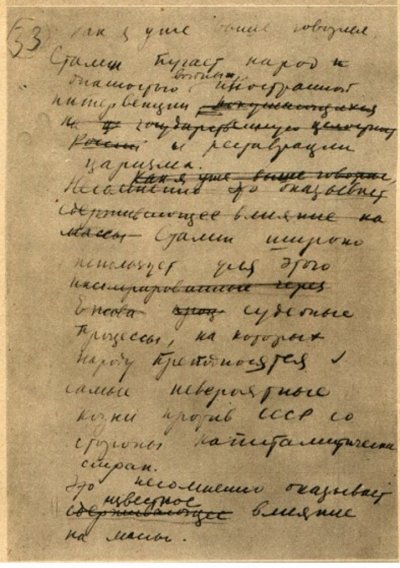 53
Как я уже выше говорил,
Сталин пугает народ
опасностью войны, иностранной
интервенции покушающихся
на государственную целостность
России и реставрации
царизма.
Как я уже выше говорил,
Несомненно это оказывает
сдерживающее влияние на
массы Сталин широко
использует для этого
инсценированные через
Ежова проц судебные
процессы, на которых
народу преподносятся
самые невероятные
козни против СССР со
стороны капиталистическ
стран.
Это несомненно оказывает
известное
сдерживающее влияние
на массы.